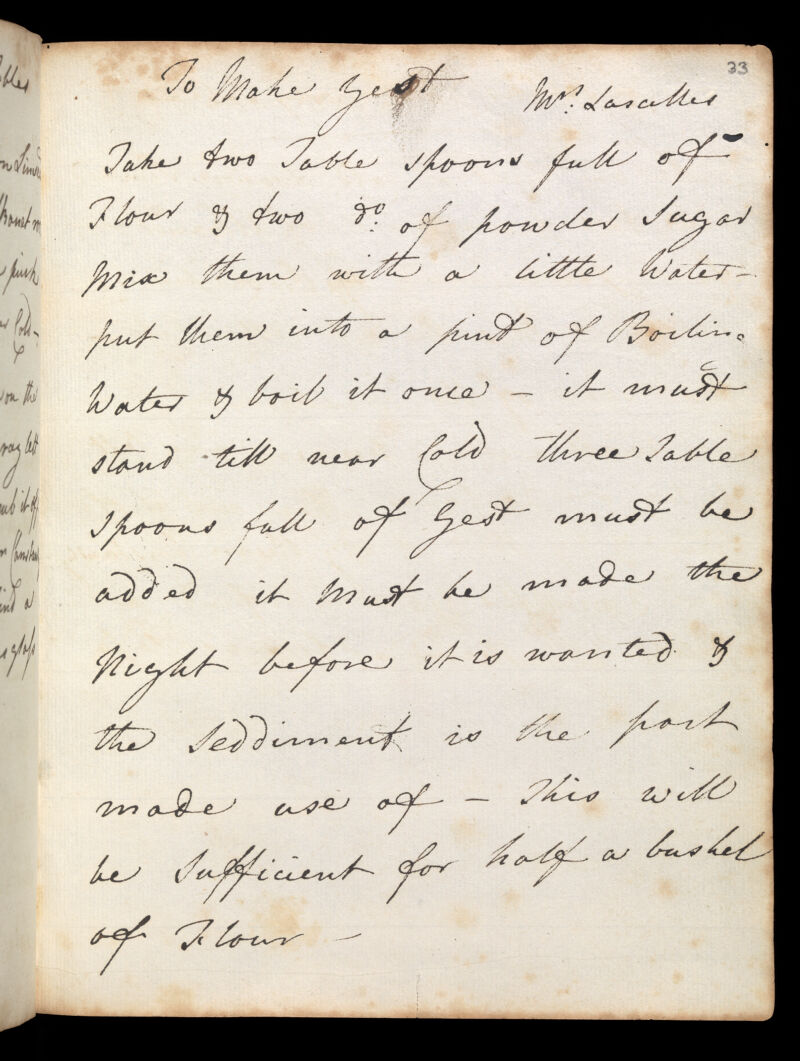 33
To Make Yest
Mrs. Lascelles
Take two Table spoons full of
Flour & two do. of powder Sugar
Mix them with a little Water -
put them into a pint of Boiling
Water & boil it once - it must
stand till near Cold three Table
spoons full of Yest must be
added it Must be made the
Night before it is wanted &
the Seddiment is the part
made use of - This will
be Sufficient for half a bushel
of Flour -
on the
pink